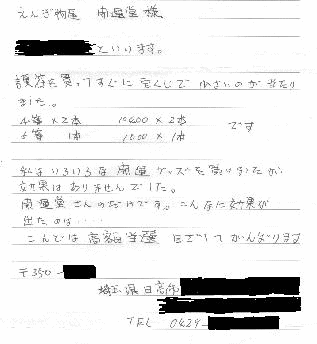 えんぎ物屋 開運堂 様
といいます。
護符を買ってすぐに宝くじで 小さいのが当たり
ました。
4等 × 2本 10400 × 2本
5等 1本 1000 × 1本 です
私はいろいろな 開運グッズを買いましたが
効果はありませんでした。
開運堂さんのだけです。こんなに効果が
出たのは……
こんどは 高額当選 目ざして がんばります
〒350-
埼玉県日高市
TEL 0429-